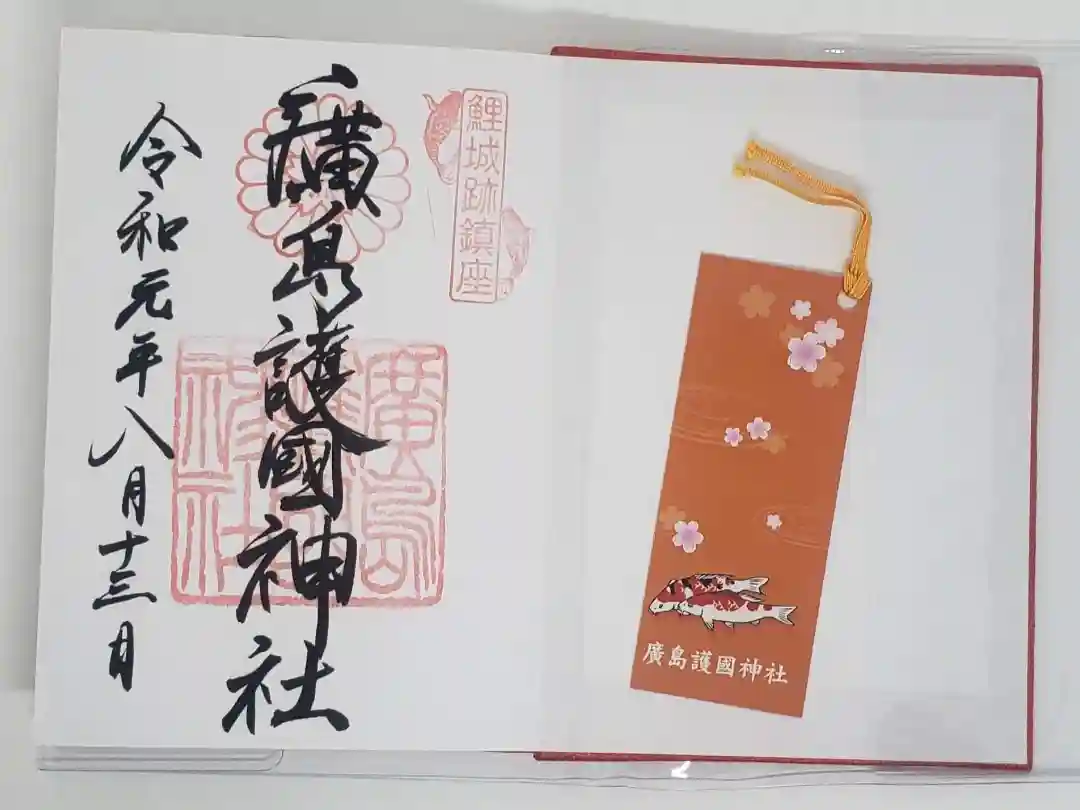 鯉城跡鎮座
廣島護國神社
廣島護國神社
令和元年八月十三日
廣島護國神社